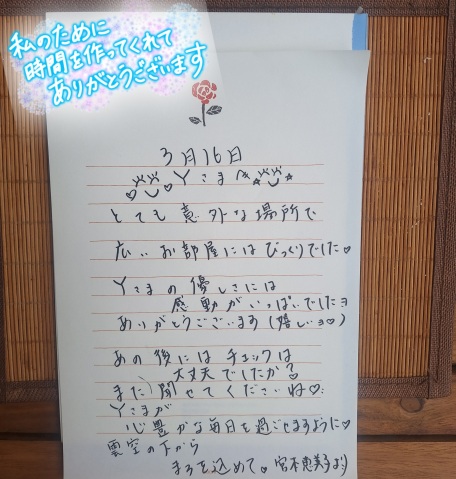 私のために
時間を作ってくれて
ありがとうございます
3月16日
Yさまへ
とても意外な場所で
広いお部屋にはびっくりでした♡
Yさまの優しさには
感動がいっぱいでしたヨ
ありがとうございます(嬉しいョ♡)
あの後にはチェックは
大丈夫でしたか?
また聞かせてくださいね♡
Yさまが
心豊かな毎日を過ごせますように♡
雲空の下から
まごを込めて♡宮本恵美子より